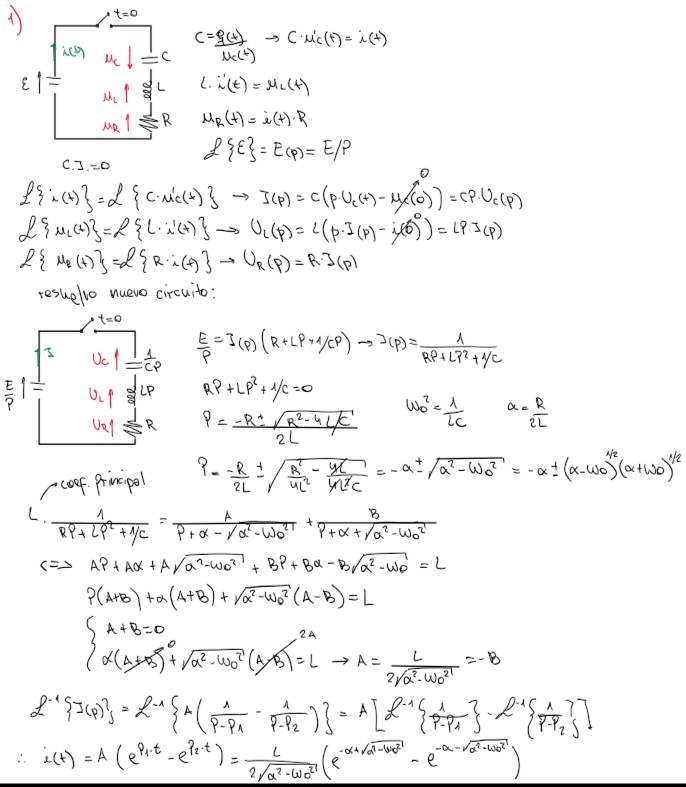 1)
t=0
i(t)
E
μ_C
C
μ_L
L
μ_R
R
C.I.=0
C = q(t)/μ_C(t) → C·μ'_C(t) = i(t)
L·i'(t) = μ_L(t)
μ_R(t) = i(t)·R
ℒ{E} = E(p) = E/P
ℒ{i(t)} = ℒ{C·μ'_C(t)} → I(p) = C(p·U_C(t) - μ_C(0)) = CP·U_C(p)
0
ℒ{μ_L(t)} = ℒ{L·i'(t)} → U_L(p) = L(p·I(p) - i(0)) = LP·I(p)
0
ℒ{μ_R(t)} = ℒ{R·i(t)} → U_R(p) = R·I(p)
resuelvo nuevo circuito:
t=0
I
E/P
U_C
1/CP
U_L
LP
U_R
R
E/P = I(p)(R+LP+1/CP) → I(p) = 1/(RP+LP²+1/C)
RP+LP²+1/C=0
P = (-R ± √(R²-4L/C))/2L
ω₀² = 1/LC
α = R/2L
P = -R/2L ± √(R²/4L² - 4L/4L²C) = -α ± √(α²-ω₀²) = -α ± (α-ω₀)^1/2 (α+ω₀)^1/2
coef. principal
L · 1/(RP+LP²+1/C) = A/(P+α-√(α²-ω₀²)) + B/(P+α+√(α²-ω₀²))
<=> AP+Aα+A√(α²-ω₀²) + BP+Bα-B√(α²-ω₀) = L
P(A+B)+α(A+B)+√(α²-ω₀²)(A-B)=L
{ A+B=0
α(A+B)+√(α²-ω₀²)(A-B)=L → A = L/(2√(α²-ω₀²)) = -B
0
2A
ℒ⁻¹{I(p)} = ℒ⁻¹{A(1/(P-P1) - 1/(P-P2))} = A[ℒ⁻¹{1/(P-P1)} - ℒ⁻¹{1/(P-P2)}]
∴ i(t) = A(e^(P1·t) - e^(P2·t)) = L/(2√(α²-ω₀²)) (e^(-α+√(α²-ω₀²)) - e^(-α-√(α²-ω₀²)))